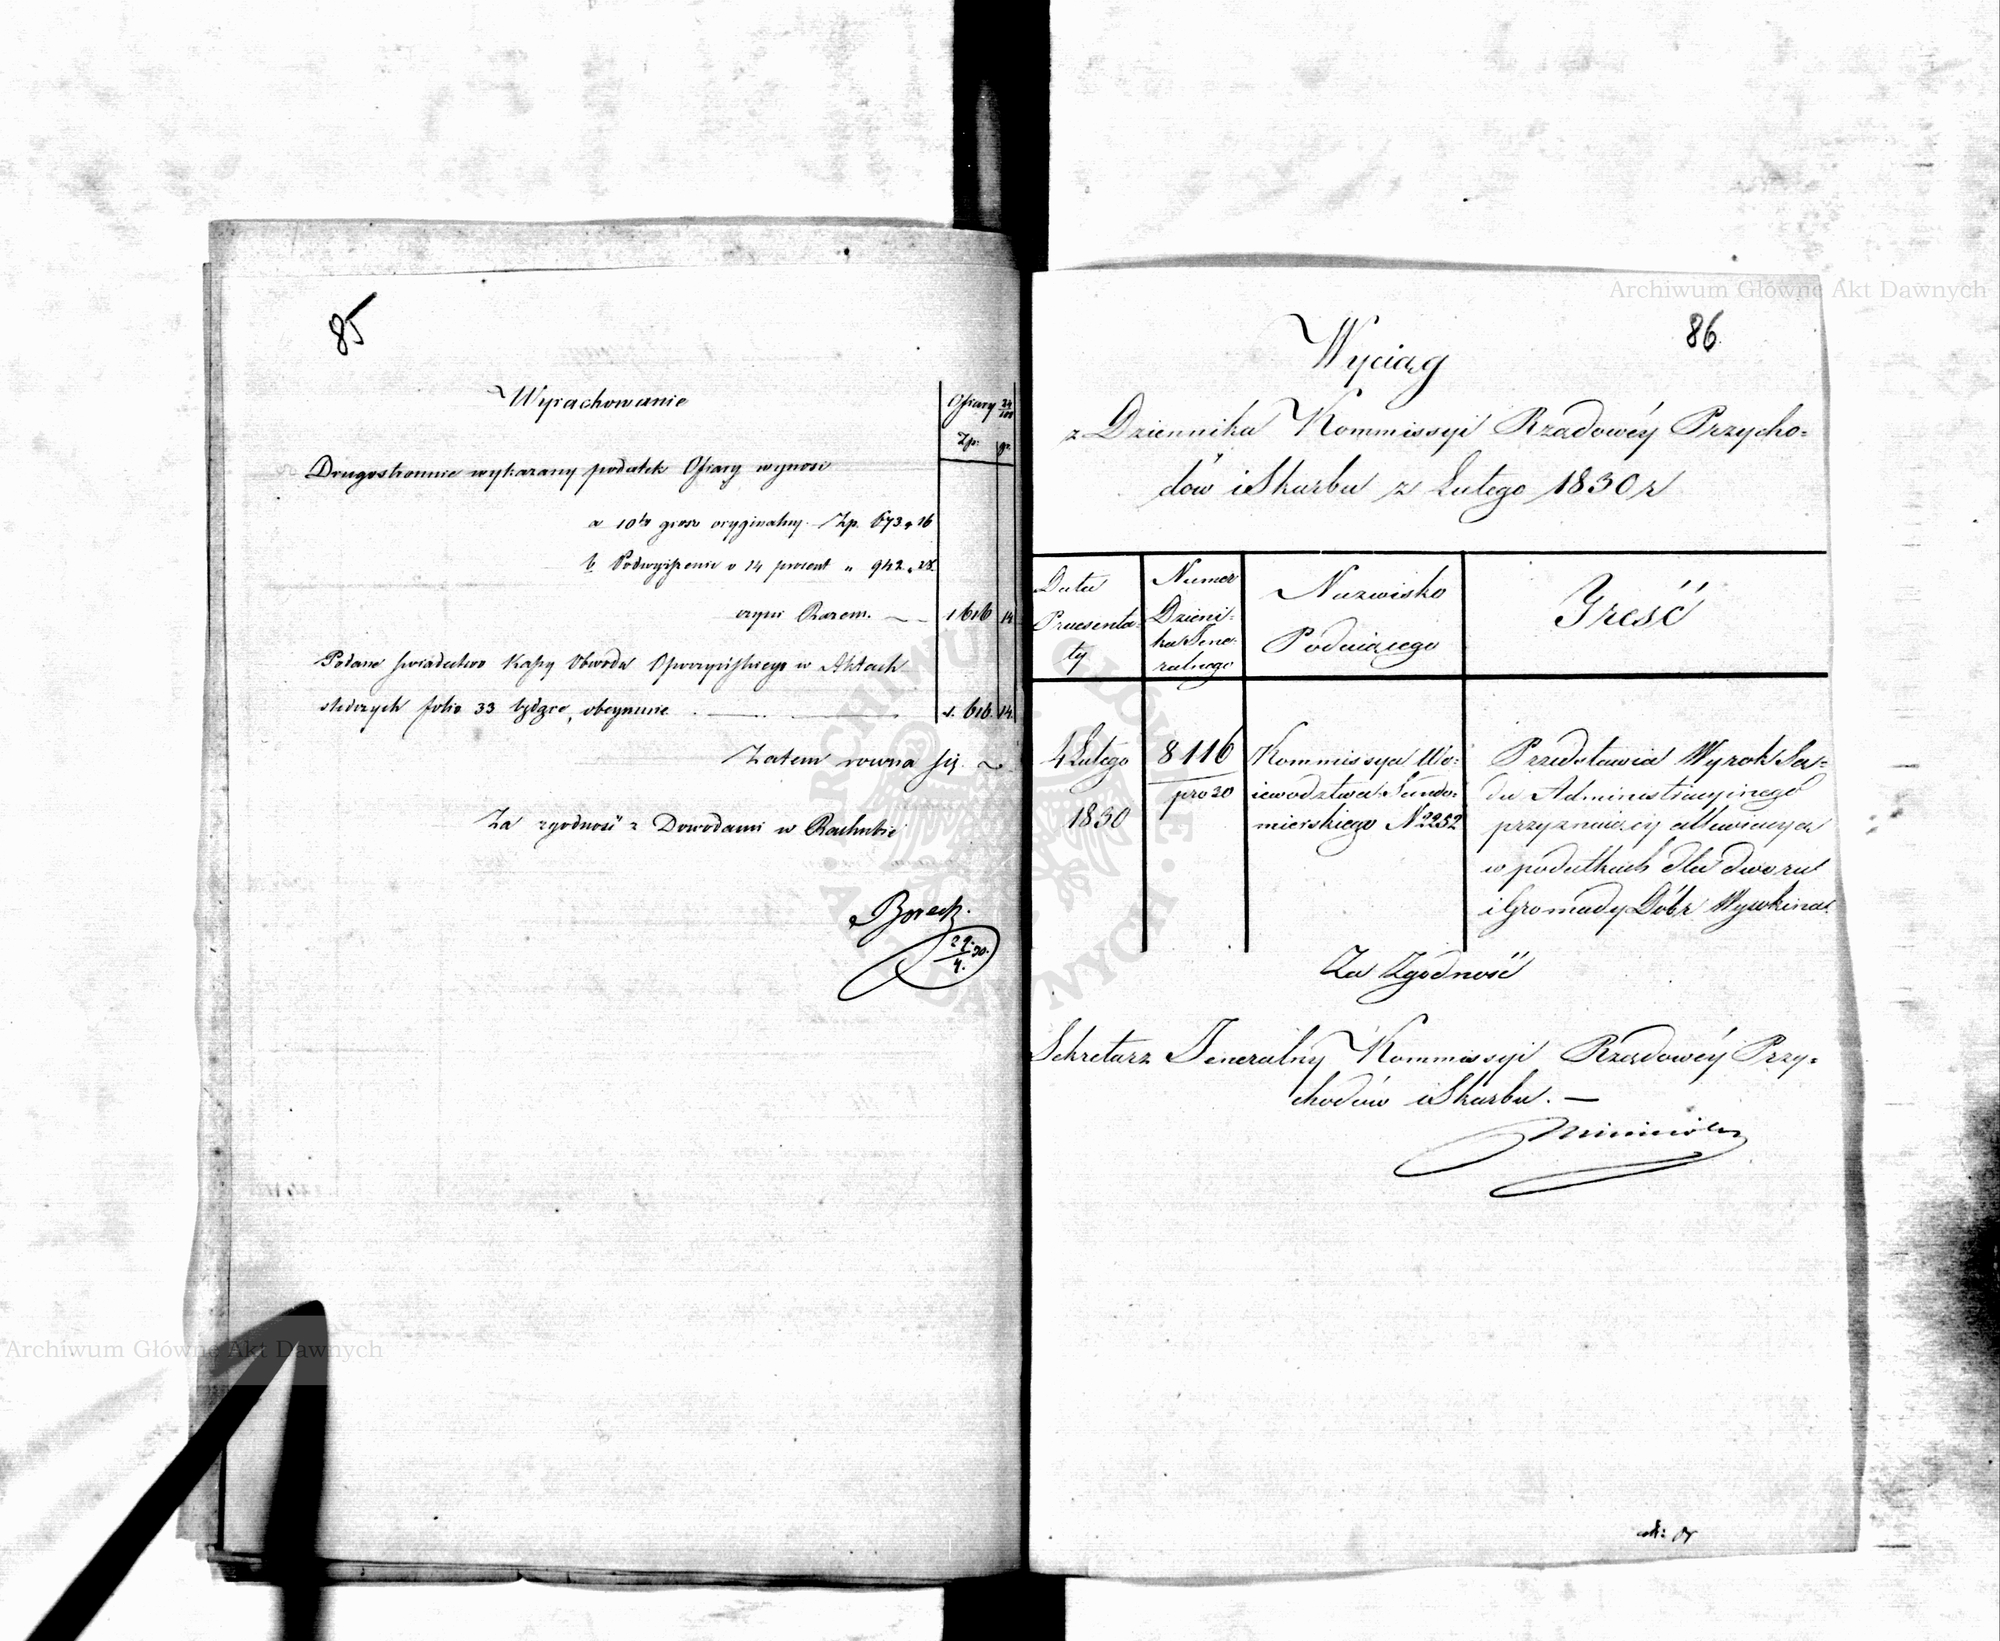 85
Wyrachowanie
Ofiary 24/100
Zp. gr.
Drugostronnie wykazany podatek Ofiary wynosi
a 10te grosz oryginalny Zp. 673 " 16
b Podwyższenie o 14 procent " 942 " 28
czyni Razem. 1616 14
Podane świadectwo Kassy Obwodu Opoczyńskiego w Aktach
śledczych folio 33 będące, obeymuie 1. 616. 14
Zatem rowna się
Za zgodność z Dowodami w Rachubie
29/4. 30.
86
Wyciąg
z Dziennika Kommissyi Rządowéy Przycho=
dów i Skarbu z Lutego 1830 r
Data
Praesenta=
ty
Numer
Dzieni=
ka Jene=
ralnego
Nazwisko
Podaiącego
Treść
4 Lutego
1830
8116
pro 20
Kommissya Wo=
iewodztwa Sando=
mierskiego N 2252
Przedstawia Wyrok Są=
du Administracyinego
przyznaiący allewiacya
w podatkach dla dworu
i Gromady Dóbr Wysokina
Za Zgodność
Sekretarz Jeneralny Kommissyi Rządowéy Przy=
chodów i Skarbu. —
Archiwum Główne Akt Dawnych
Archiwum Główne Akt Dawnych
ARCHIWUM GŁÓWNE AKT DAWNYCH